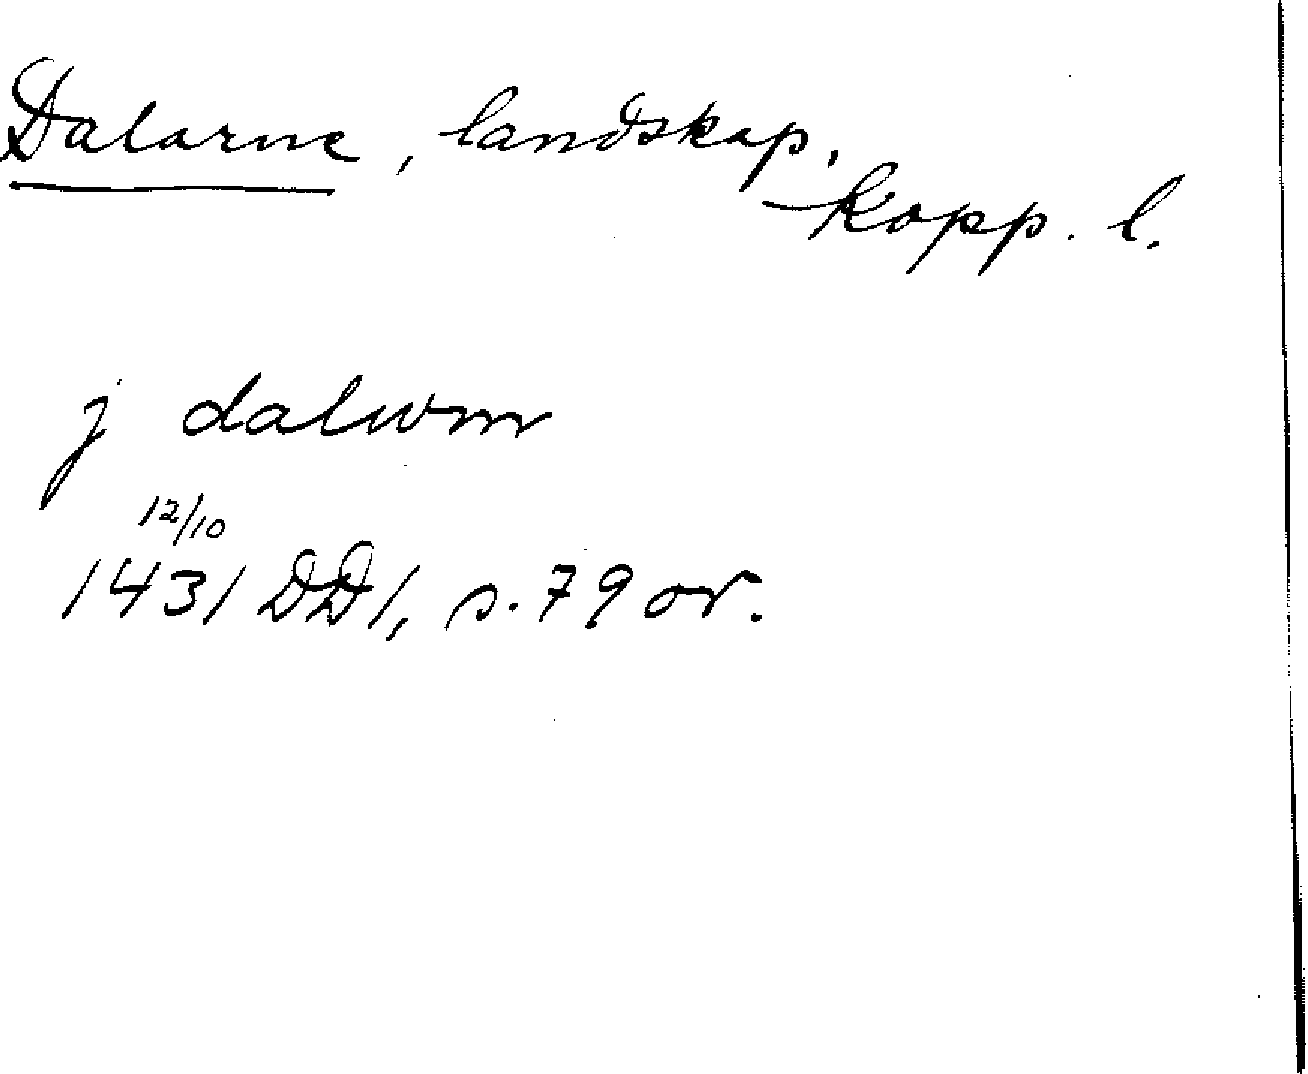 Dalarne, landskap,
Kopp. l.
j dalwm
12/10
1431 DD1, s. 79 or.